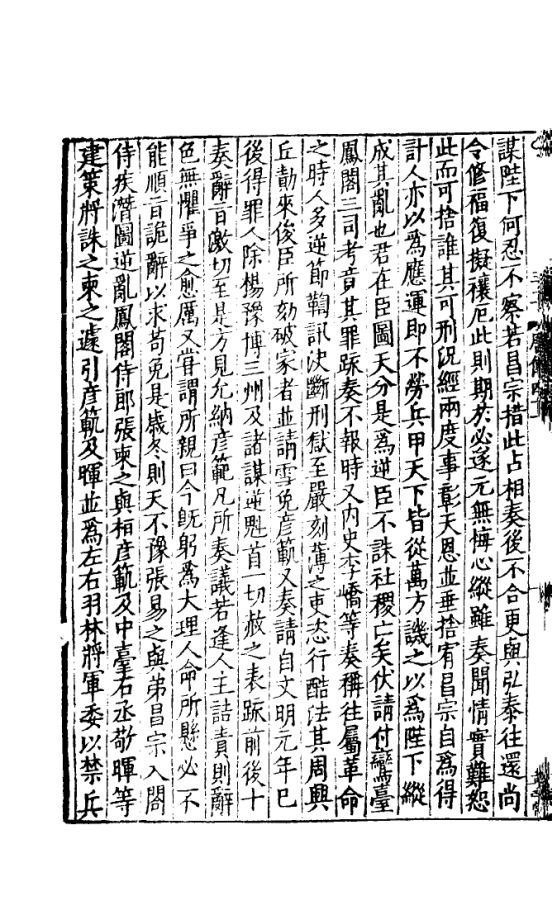 謀陛下何忍不察若昌宗措此占相奏後不合更與弘泰往還尚
令修福復擬禳厄此則期於必遂元無悔心縱雖奏聞情實難恕
此而可捨誰其可刑況經兩度事彰天恩並垂捨宥昌宗自爲得
計人亦以爲應運即不勞兵甲天下皆從萬方譏之以爲陛下縱
成其亂也君在臣圖天分是爲逆臣不誅社稷亡矣伏請付鸞臺
鳳閣三司考竟其罪踈奏不報時又內史李嶠等奏稱往屬革命
之時人多逆節鞫訊決斷刑獄至嚴刻薄之吏恣行酷法其周興
丘勣來俊臣所劾破家者並請雪免彦範又奏請自文明元年已
後得罪人除楊豫博三州及諸謀逆魁首一切赦之表踈前後十
奏辭旨激切至是方見允納彦範凡所奏議若逢人主詰責則辭
色無懼爭之愈厲又嘗謂所親曰今旣躬爲大理人命所懸必不
能順旨詭辭以求苟免是歳冬則天不豫張易之與弟昌宗入閤
侍疾潛圖逆亂鳳閣侍郎張柬之與桓彦範及中臺右丞敬暉等
建策將誅之柬之遽引彦範及暉並爲左右羽林將軍委以禁兵